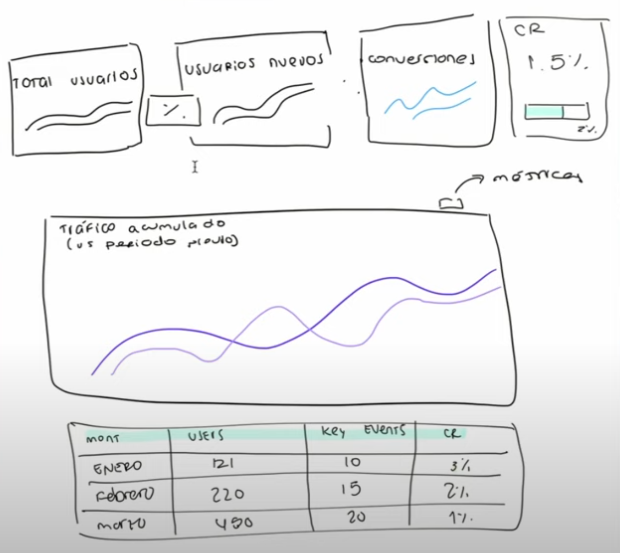 TOTAL USUARIOS
%
USUARIOS NUEVOS
CONVERSIONES
CR
1.5%
2%
métricas
Tráfico acumulado
(vs periodo previo)
MONT USERS KEY EVENTS CR
ENERO 121 10 3%
Febrero 220 15 2%
marzo 450 20 1%